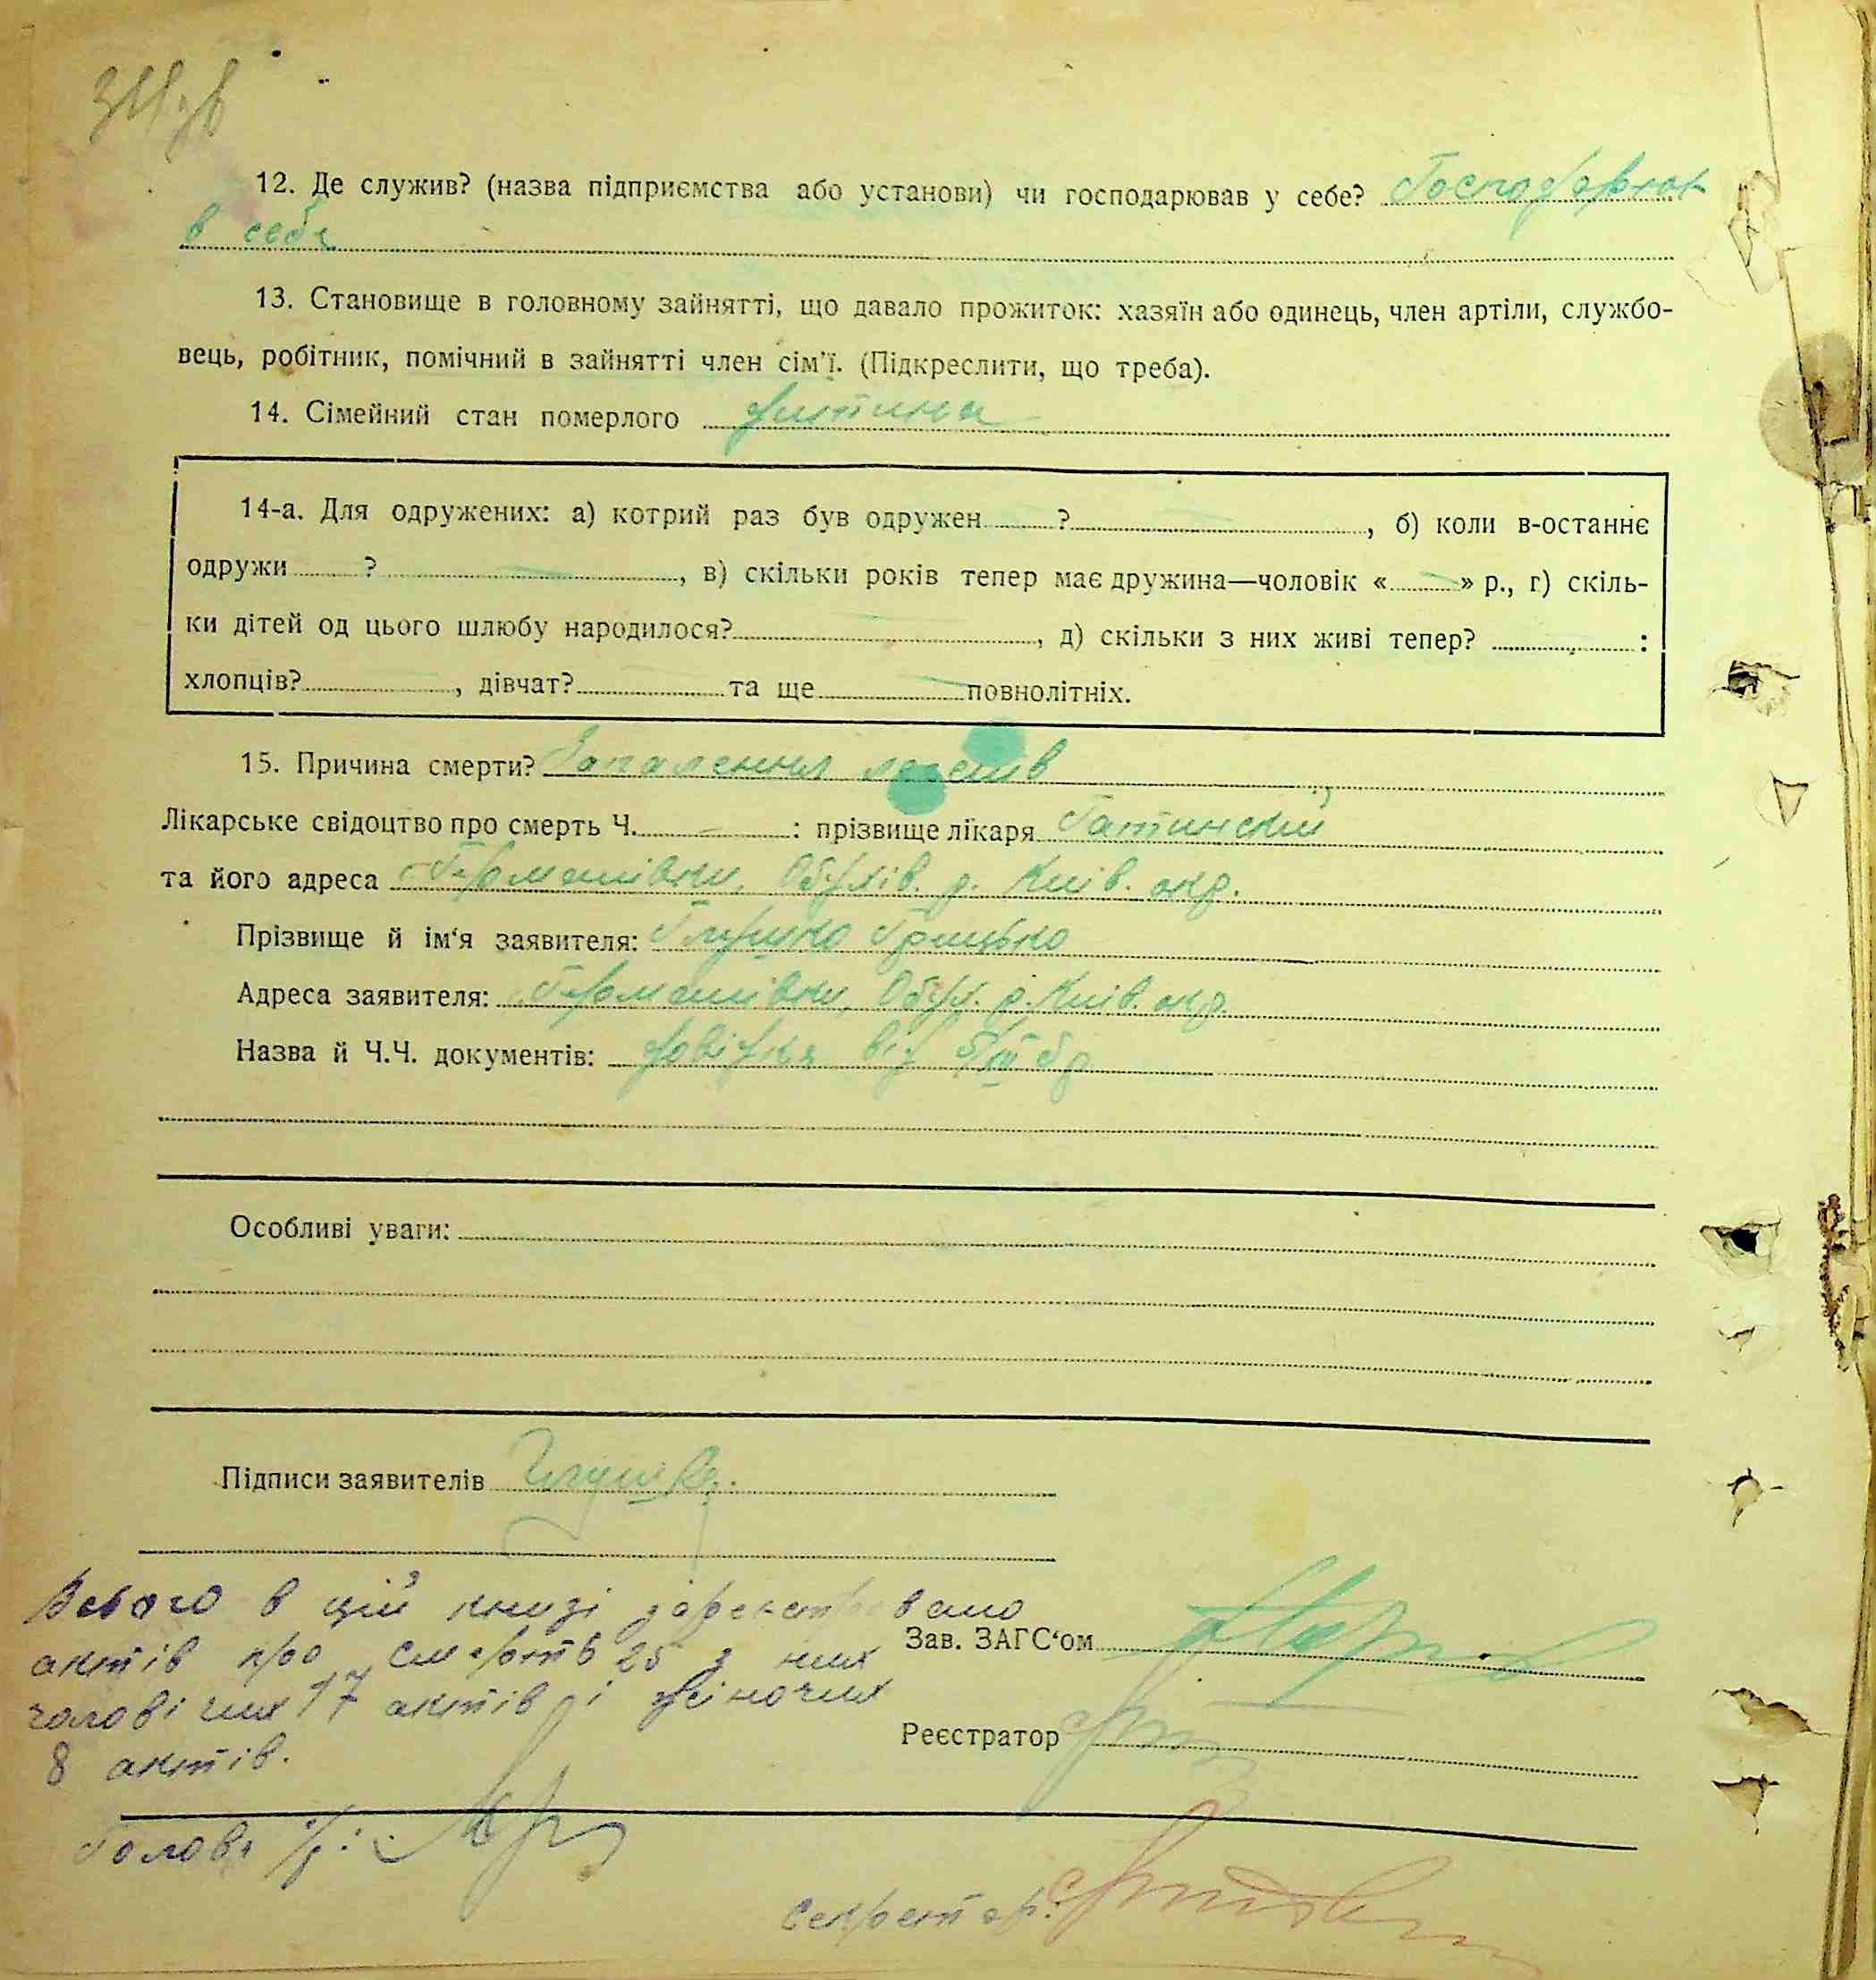 12. Де служив? (назва підприємства або установи) чи господарював у себе? Господарював
в себе
13. Становище в головному зайнятті, що давало прожиток: хазяїн або одинець, член артіли, службо-
вець, робітник, помічний в зайнятті член сім'ї. (Підкреслити, що треба).
14. Сімейний стан померлого дитина
14-а. Для одружених: а) котрий раз був одружен ? , б) коли в-останнє
одружи ? , в) скільки років тепер має дружина—чоловік « » р., г) скіль-
ки дітей од цього шлюбу народилося? , д) скільки з них живі тепер? :
хлопців? , дівчат? та ще повнолітніх.
15. Причина смерти? Запалення легенів
Лікарське свідоцтво про смерть Ч. — : прізвище лікаря Гатинский
та його адреса Германівки, Обухів. р. Київ. окр.
Прізвище й ім'я заявителя: Глушко Грицько
Адреса заявителя: Германівки, Обух. р. Київ. окр.
Назва й Ч.Ч. документів: довідка від
Особливі уваги:
Підписи заявителів Глушко.
Всього в цій книзі зареєстровано
актів про смерть 25 з них
Зав. ЗАГС'ом
чоловічих 17 актів і жіночих
Реєстратор
8 актів.
Голова с/р:
Секретар: